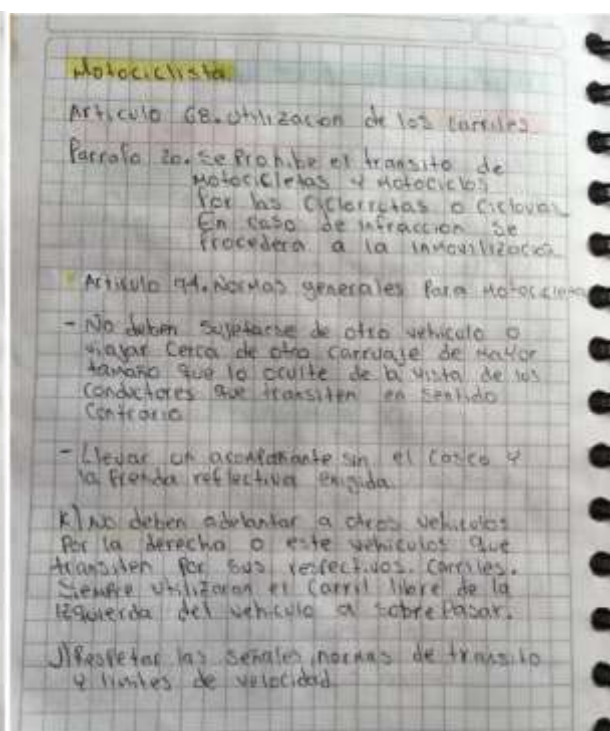 Motociclista
Articulo 68. Utilizacion de los carriles
Parrafo 2o. Se Prohibe el transito de
Motocicletas y Motociclos
Por las Ciclorrutas o Ciclovias
En caso de infraccion se
Procedera a la inmovilizacion
Articulo 94. Normas generales Para Motocicleta
- No deben Sujetarse de otro vehiculo o
viajar Cerca de otro carruaje de Mayor
tamaño que lo oculte de la vista de los
Conductores que transiten en Sentido
Contrario
- Llevar un acompañante sin el Casco y
la Prenda reflectiva exigida.
K) No deben adelantar a otros vehiculos
Por la derecha o este vehiculos que
transiten Por sus respectivos. Carriles.
Siempre utilizaran el Carril libre de la
izquierda del vehiculo a sobrePasar.
J) Respetar las Señales, normas de transito
y limites de velocidad